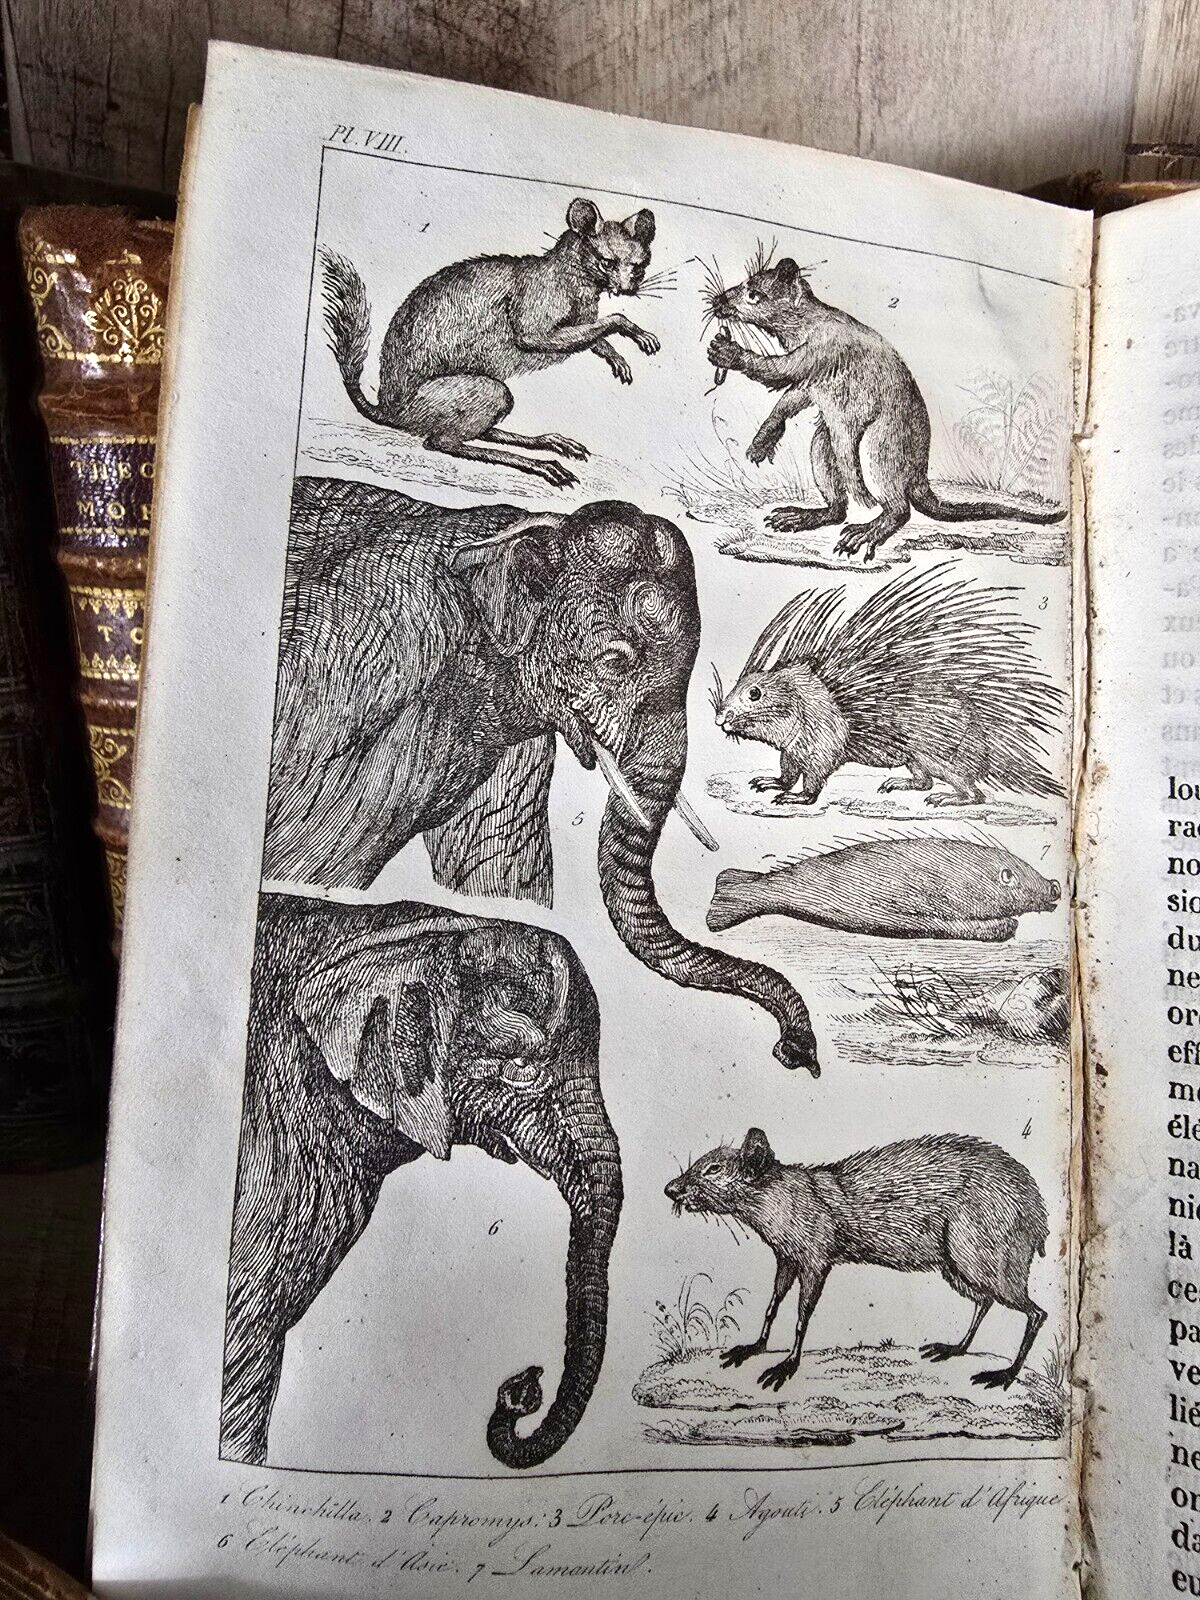 Pl. VIII.
1
2
3
5
7
4
6
1 Chinchilla. 2 Capromys: 3 Porc-épic. 4 Agouti. 5 Eléphant d'Afrique.
6 Eléphant d'Asie. 7 Lamantin.
THEO
MOR
TO
lou
no
sio
du
ne
ore
eff
me
élé
na
nie
là
ces
pa
ve
lié
ne
on
da
eu